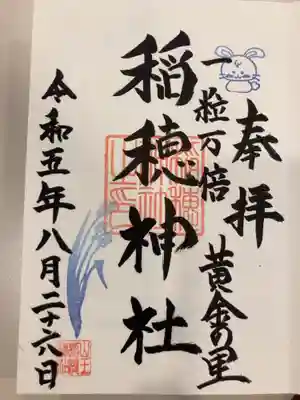 奉拝
黄金の里
一粒万倍
稲穂神社
令和五年八月二十六日